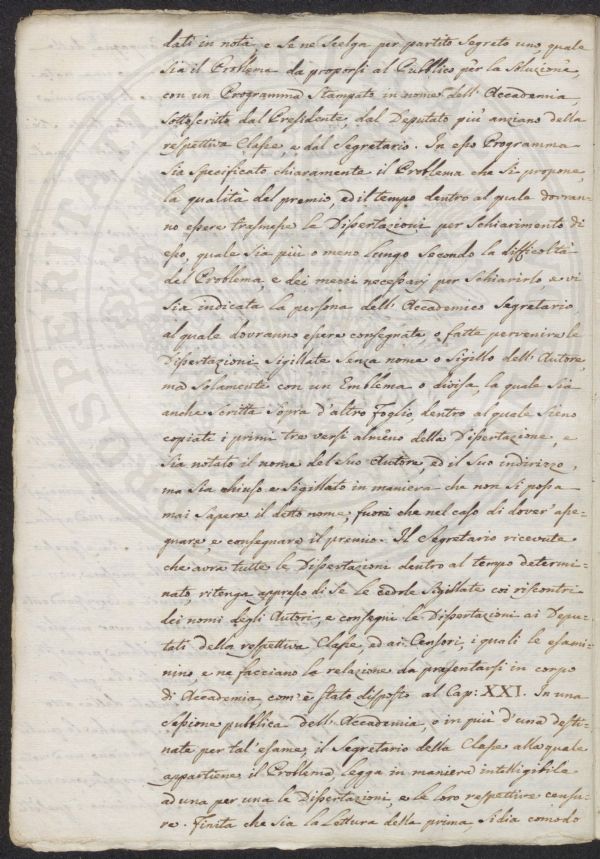 dati in nota, e se ne scelga per partito segreto uno, quale
sia il Problema da proporsi al Pubblico per la soluzione,
con un Programma stampato in nome dell'Accademia,
sottoscritto dal Presidente, dal Deputato più anziano della
respettiva Classe, e dal Segretario. In esso Programma
sia specificato chiaramente il Problema che si propone,
la qualità del premio, ed il tempo dentro al quale dovran-
no essere trasmesse le Dissertazioni per schiarimento di
esso, quale sia più o meno lungo secondo la difficoltà
del Problema, e dei mezzi necessarj per schiarirlo e vi
sia indicata la persona dell'Accademico Segretario,
al quale dovranno essere consegnate o fatte pervenire le
Dissertazioni sigillate senza nome o sigillo dell'Autore,
ma solamente con un Emblema o divisa, la quale sia
anche scritta sopra d'altro foglio, dentro al quale sieno
copiati i primi tre versi almeno della Dissertazione, e
sia notato il nome del suo Autore, ed il suo indirizzo,
ma sia chiuso e sigillato in maniera che non si possa
mai sapere il detto nome, fuori che nel caso di dover'asse-
gnare, e consegnare il premio. Il Segretario ricevute
che avrà tutte le Dissertazioni dentro al tempo determi-
nato, ritenga appresso di se le cedole sigillate coi riscontri
dei nomi degli Autori, e consegni le Dissertazioni ai Depu-
tati della respettiva Classe, ed ai Censori, i quali le esami-
nino, e ne facciano la relazione da presentarsi in corpo
di Accademia, com'è stato disposto al Cap: XXI. In una
sessione pubblica dell'Accademia, o in più d'una desti-
nata per tal'esame, il Segretario della Classe alla quale
appartiene il Problema, legga in maniera intelligibile
a una per una le Dissertazioni, e le loro respettive censu-
re. Finita che sia la lettura della prima, si dia comodo